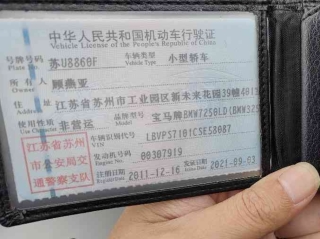 中华人民共和国机动车行驶证
Vehicle License of the People's Republic of China
号牌号码 苏U8860F 车辆类型 小型轿车
Plate No. Vehicle Type
所有人 顾燕亚
Owner
住址 江苏省苏州市工业园区新未来花园39幢401
Address
使用性质 非营运 品牌型号 宝马牌BMW7250LD(BMW325
Use Character Model
江苏省苏州市公安局交通警察支队
车辆识别代号 LBVPS7101CSE58087
VIN
发动机号码 00307919
Engine No.
注册日期 2011-12-16 发证日期 2021-09-03
Register Date Issue Date